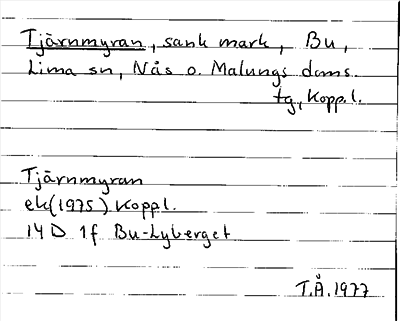 Tjärnmyran, sank mark, Bu,
Lima sn, Nås o. Malungs doms.
tg, Koppl.
Tjärnmyran
ek(1975) Koppl.
14 D 1f Bu-Lyberget
T.Å.1977